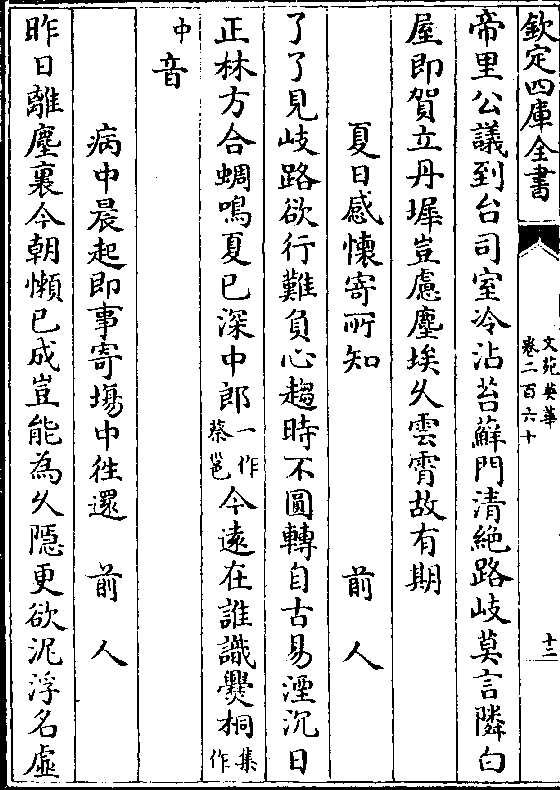 欽定四庫全書
文苑英華
卷二百六十
十三
帝里公議到台司室冷沾苔蘚門清絶路岐莫言隣白
屋即賀立丹墀豈慮塵埃久雲霄故有期
夏日感懷寄所知 前人
了了見岐路欲行難負心趨時不圓轉自古易湮沉日
正林方合蜩鳴夏已深中郎一作蔡邕今遠在誰識爨桐集作
中音
病中晨起即事寄塲中徃還 前人
昨日離塵裏今朝懶已成豈能為久隱更欲泥浮名虛